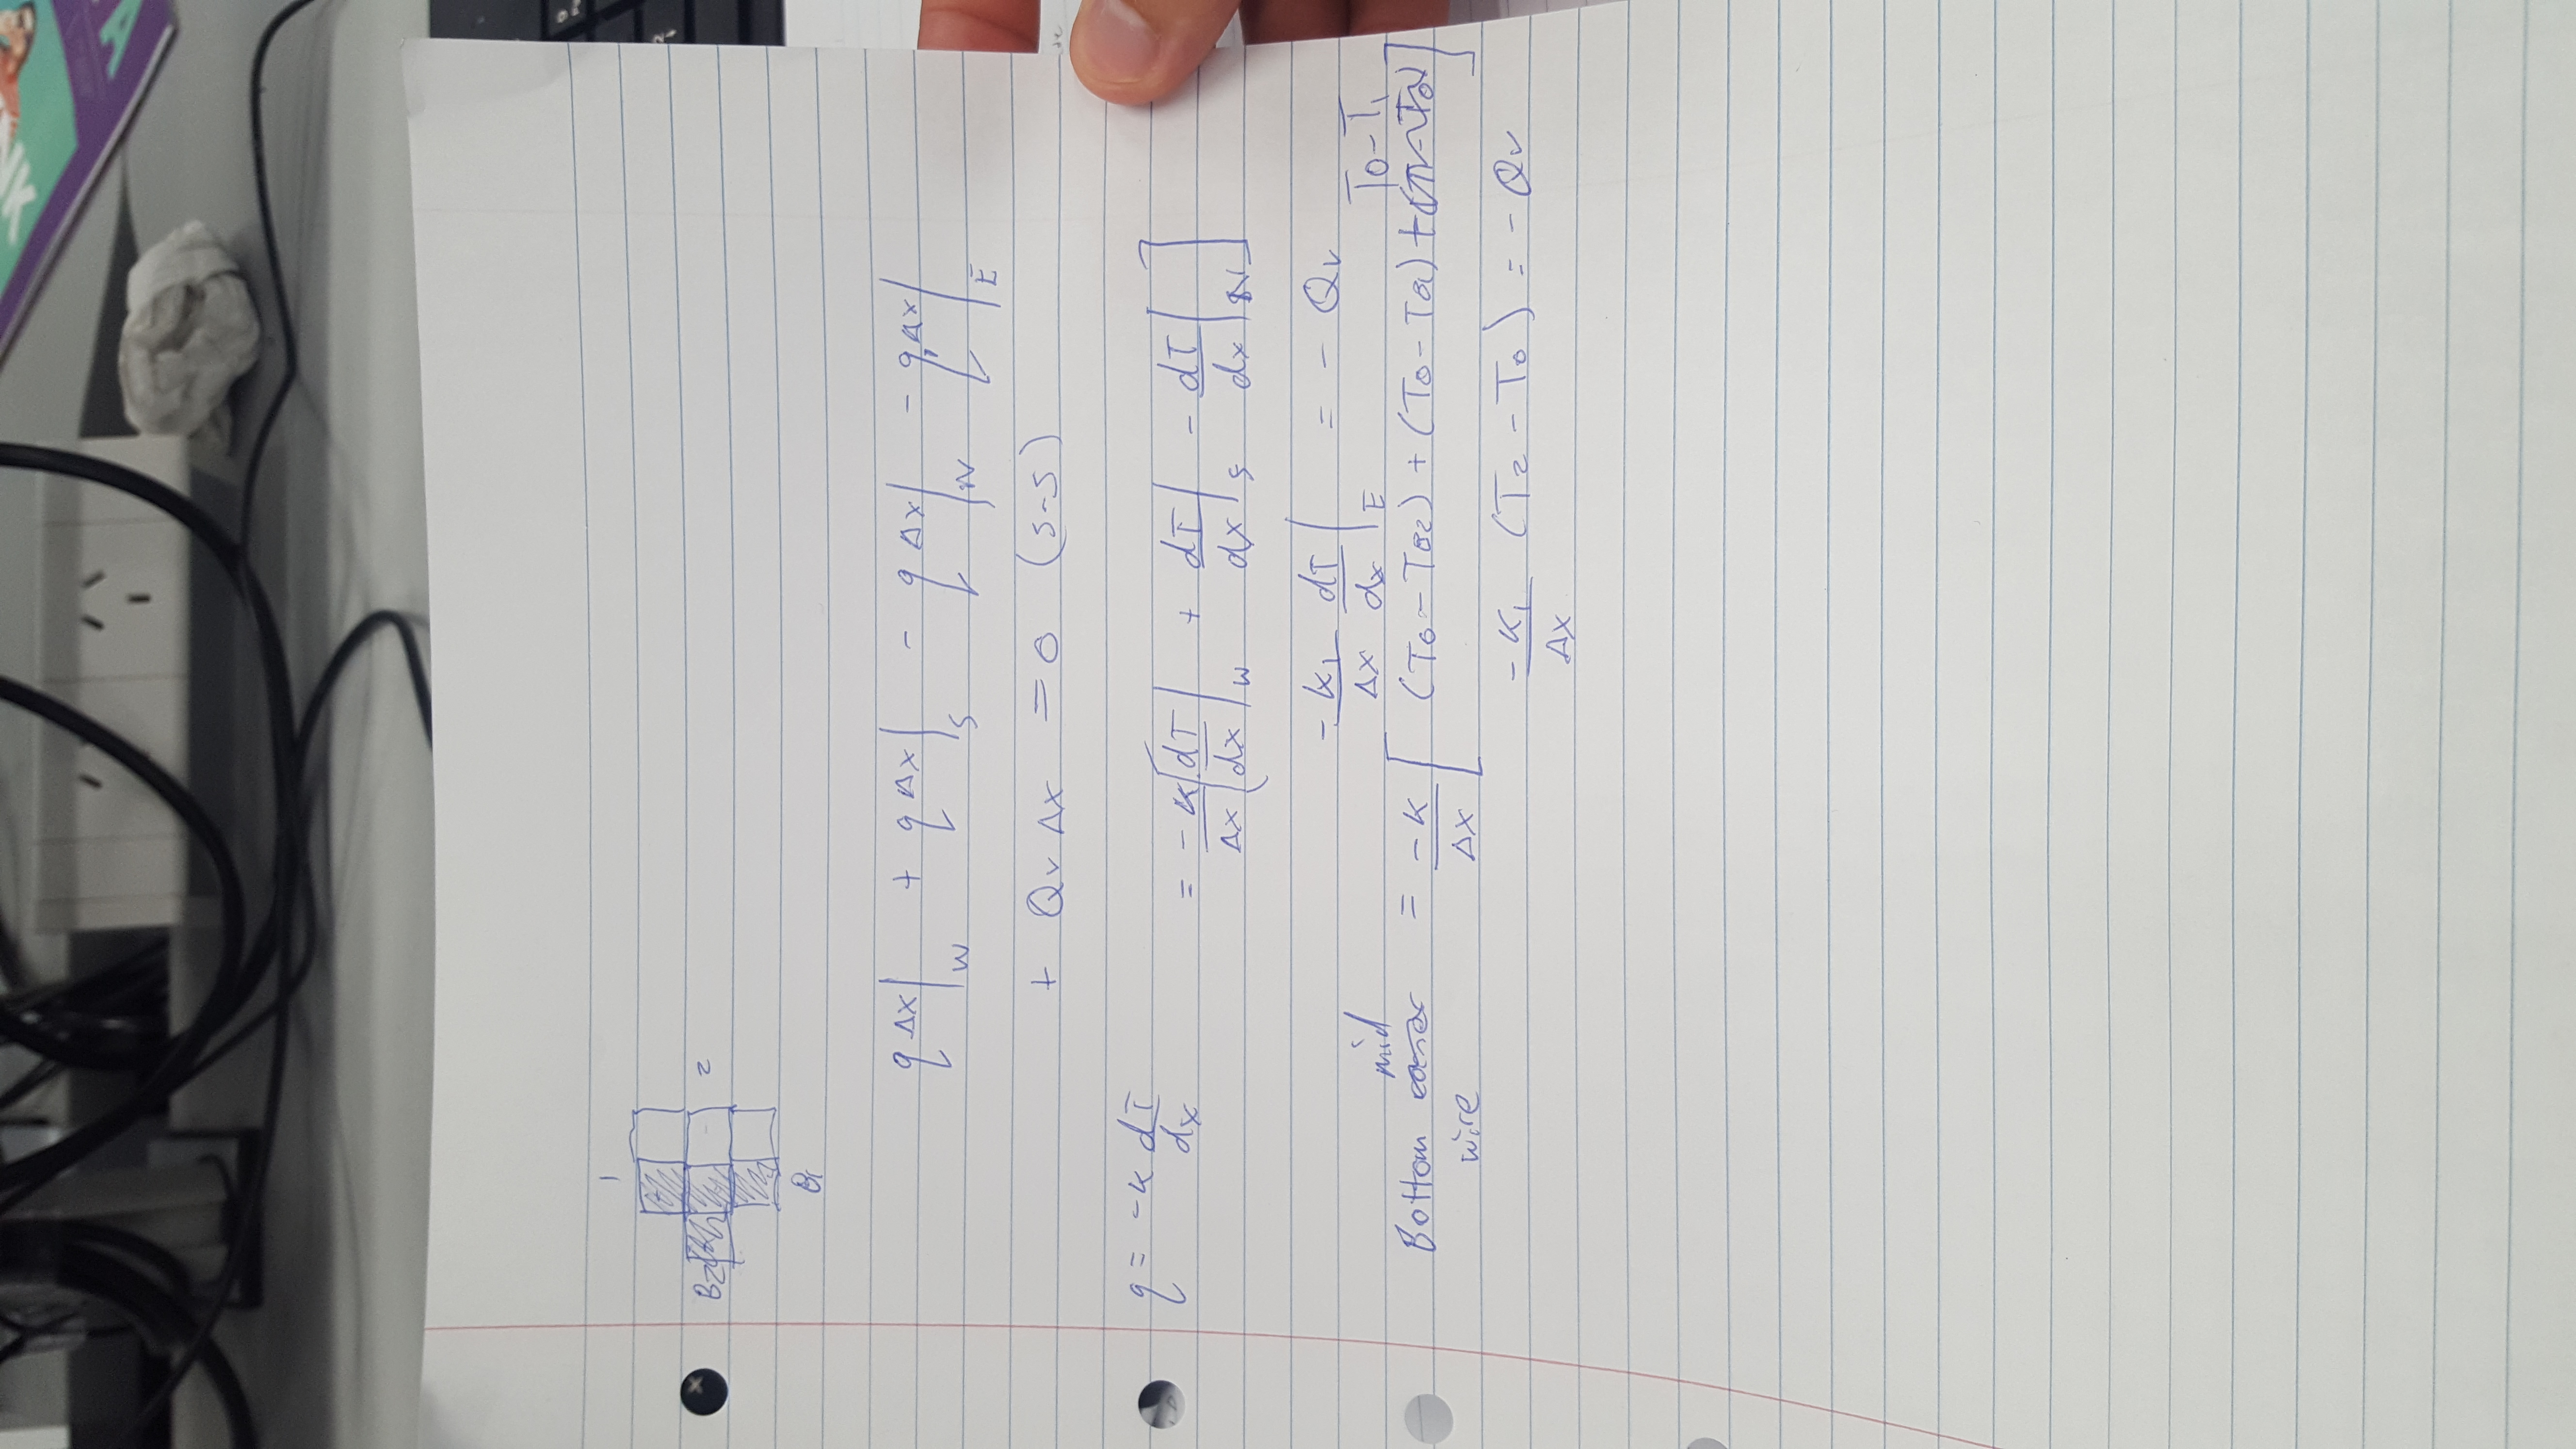 1
B2 2
B1
q Δx|W + q Δx|S - q Δx|N - q Δx|E
+ Qv Δx = 0 (s-s)
q = -k dT/dx = -k/Δx [dT/dx|W + dT/dx|S - dT/dx|N]
-k1/Δx dT/dx|E = - Qv
mid T0-T1
Bottom wire = -k/Δx [(T0-TB2) + (T0-TB1) +
-k1/Δx (T2-T0) = - Qv